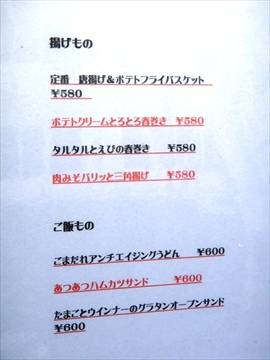 揚げもの
定番　唐揚げ&ポテトフライバスケット
￥580
ポテトクリームとろとろ春巻き　￥580
タルタルとえびの春巻き　￥580
肉みそパリッと三角揚げ　￥580
ご飯もの
ごまだれアンチエイジングうどん　￥600
あつあつハムカツサンド　￥600
たまごとウインナーのグラタンオープンサンド
￥600